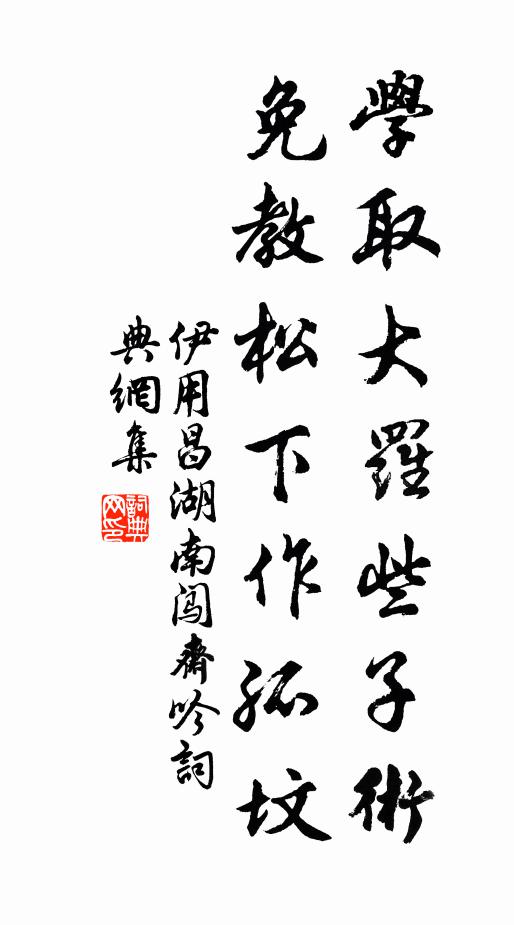 學取大羅些子術
免教松下作孤墳
伊用昌湖南闯齋吟詞
典網集
詞典网印